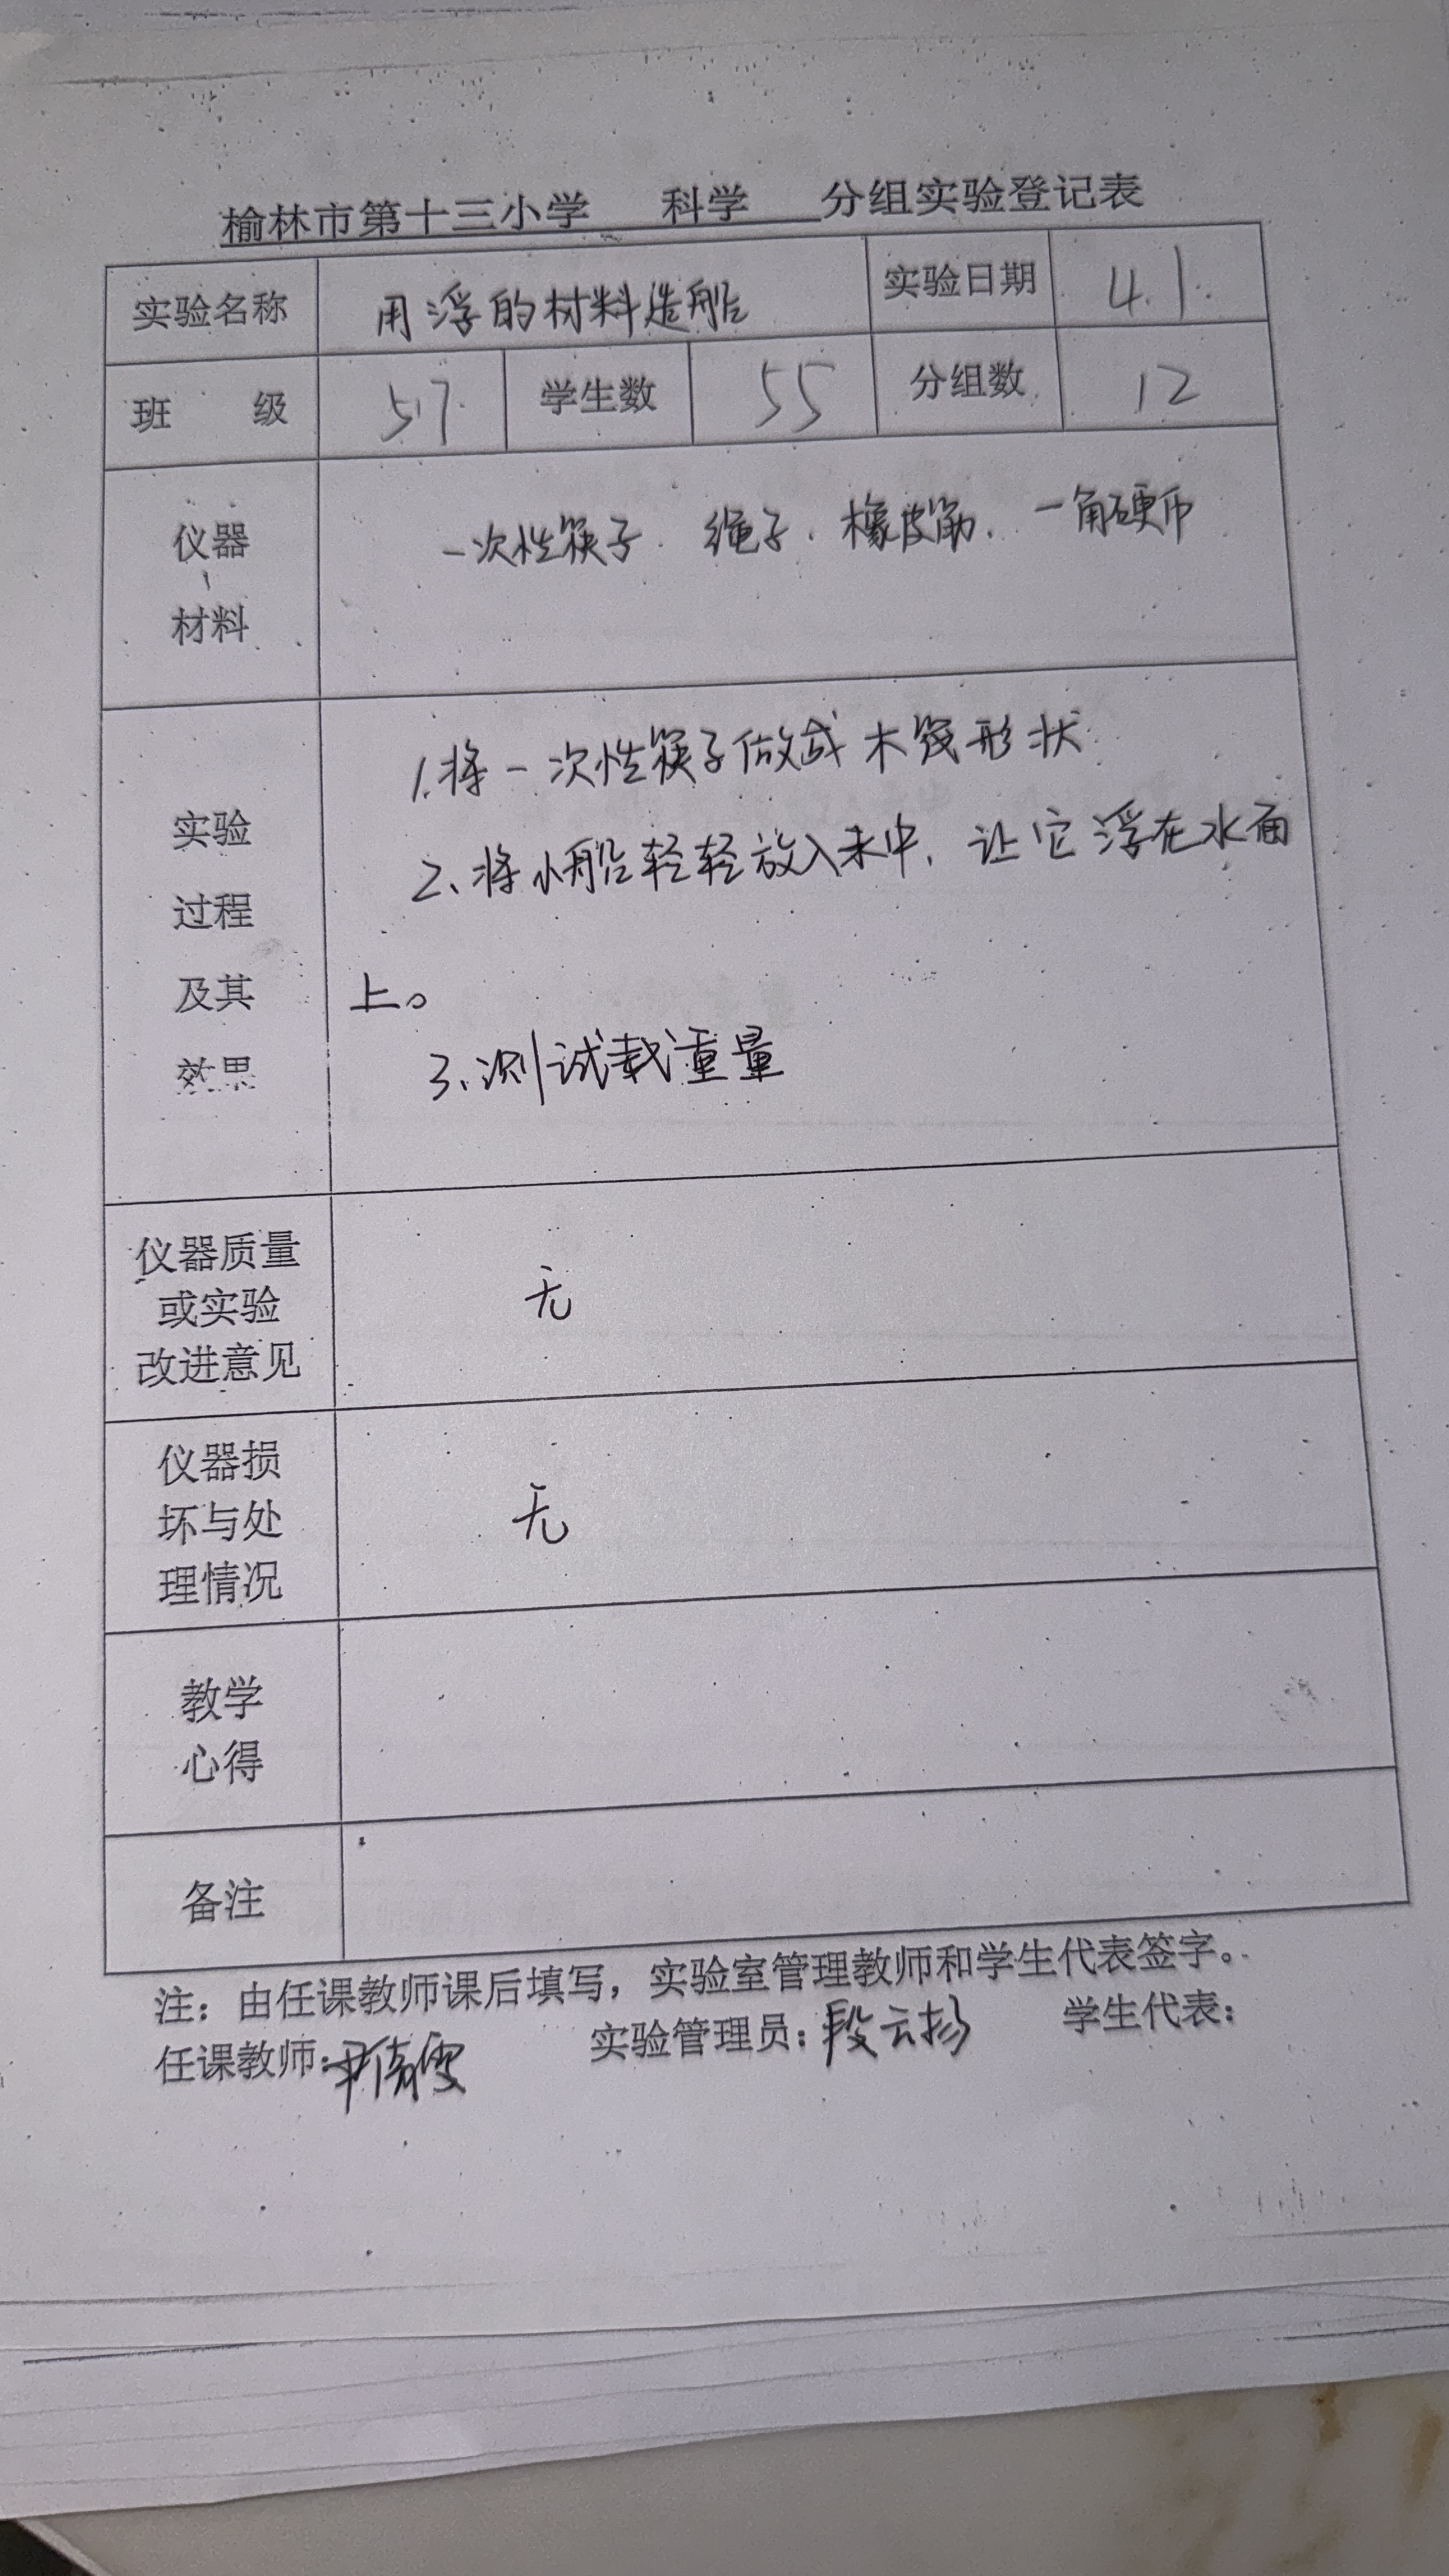 榆林市第十三小学 科学 分组实验登记表
实验名称 用浮的材料造船 实验日期 4.1
班 级 5.7 学生数 55 分组数 12
仪器
材料
一次性筷子、绳子、橡皮筋、一角硬币
实验
过程
及其
效果
1.将一次性筷子做成木筏形状
2、将小船轻轻放入水中，让它浮在水面
上。
3、测试载重量
仪器质量
或实验
改进意见
无
仪器损
坏与处
理情况
无
教学
心得
备注
注：由任课教师课后填写，实验室管理教师和学生代表签字。
任课教师： 实验管理员：段云扬 学生代表：